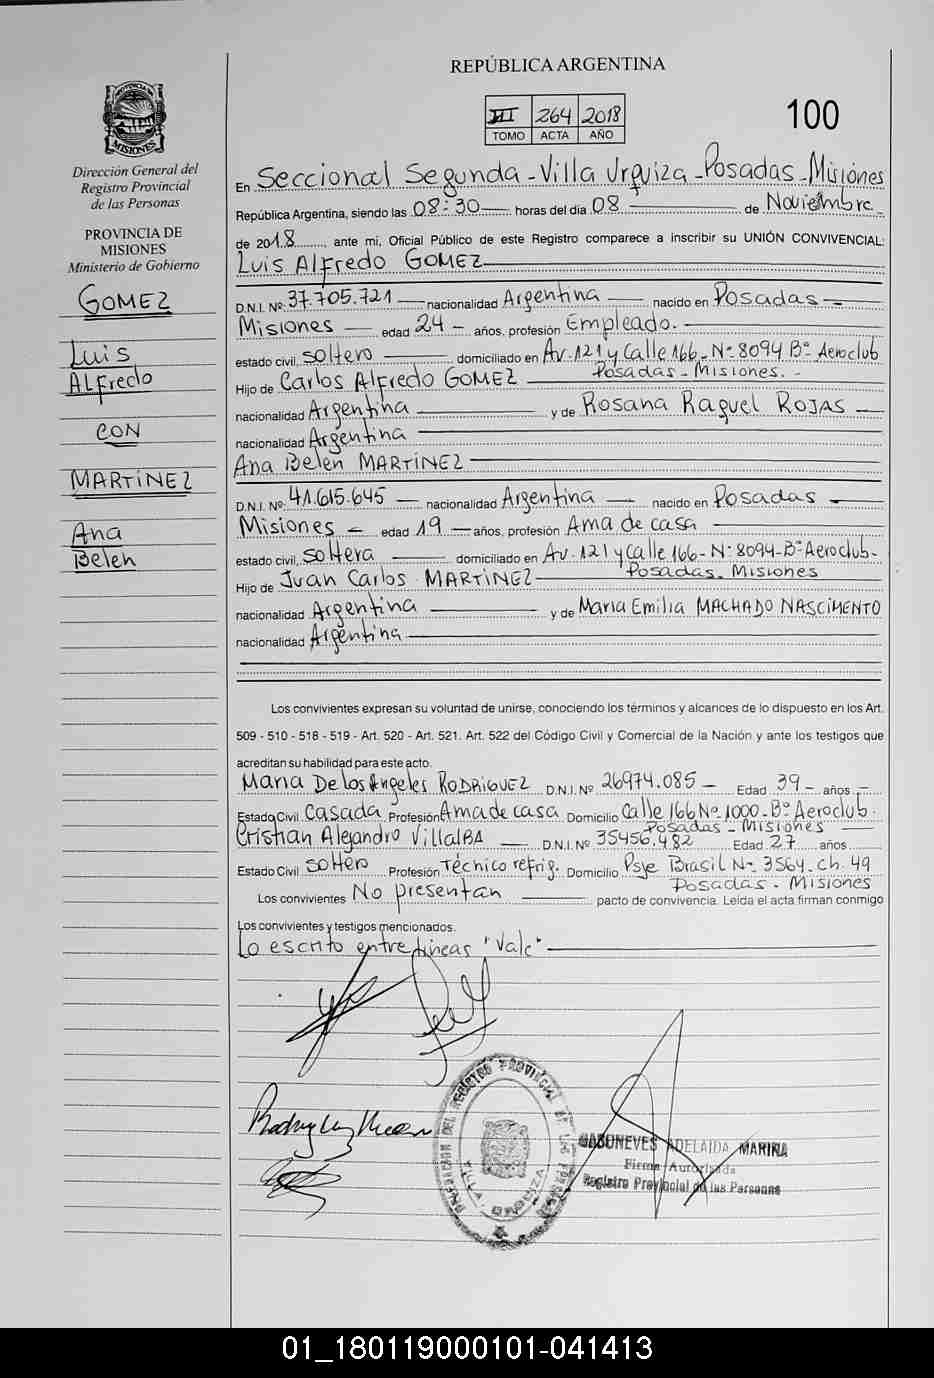 REPÚBLICA ARGENTINA
III 264 2018
TOMO ACTA AÑO
100
PROVINCIA DE
MISIONES
Dirección General del
Registro Provincial
de las Personas
PROVINCIA DE
MISIONES
Ministerio de Gobierno
GOMEZ
Luis
ALfredo
CON
MARTíNEZ
Ana
Belen
En Seccional Segunda - Villa Urquiza - Posadas - Misiones
República Argentina, siendo las 08:30 horas del día 08 de Noviembre
de 2018, ante mi, Oficial Público de este Registro comparece a inscribir su UNIÓN CONVIVENCIAL:
Luis Alfredo GOMEZ
D.N.I. Nº 37.705.721 nacionalidad Argentina nacido en Posadas -
Misiones edad 24 - años, profesión Empleado.
estado civil, soltero domiciliado en Av. 121 y Calle 166 - Nº 8094 Bº Aeroclub
Posadas - Misiones. -
Hijo de Carlos Alfredo GOMEZ
nacionalidad Argentina y de Rosana Raquel ROJAS
nacionalidad Argentina
Ana Belen MARTíNEZ
D.N.I. Nº 41.615.645 nacionalidad Argentina nacido en Posadas
Misiones - edad 19 - años, profesión Ama de casa
estado civil, soltera domiciliado en Av. 121 y Calle 166 - Nº 8094 - Bº Aeroclub -
Posadas - Misiones
Hijo de Juan Carlos MARTíNEZ
nacionalidad Argentina y de Maria Emilia MACHADO NASCiMENTO
nacionalidad Argentina
Los convivientes expresan su voluntad de unirse, conociendo los términos y alcances de lo dispuesto en los Art.
509 - 510 - 518 - 519 - Art. 520 - Art. 521. Art. 522 del Código Civil y Comercial de la Nación y ante los testigos que
acreditan su habilidad para este acto.
Maria De los Angeles RODRiGUEZ D.N.I. Nº 26974.085 - Edad 39 - años -
Estado Civil Casada Profesión Ama de casa Domicilio Calle 166 Nº 1000 - Bº Aeroclub.
Posadas - Misiones
Cristian Alejandro VillalBA D.N.I. Nº 35456.482 Edad 27 años
Estado Civil soltero Profesión Técnico refrig. Domicilio Psje Brasil Nº 3564. ch. 49
Posadas - Misiones
Los convivientes No presentan pacto de convivencia. Leída el acta firman conmigo
Los convivientes y testigos mencionados.
Lo escrito entre líneas "Vale"
VILLA URQUIZA
ADELAIDA MARINA
Firma Autorizada
Registro Provincial de las Personas
01_180119000101-041413